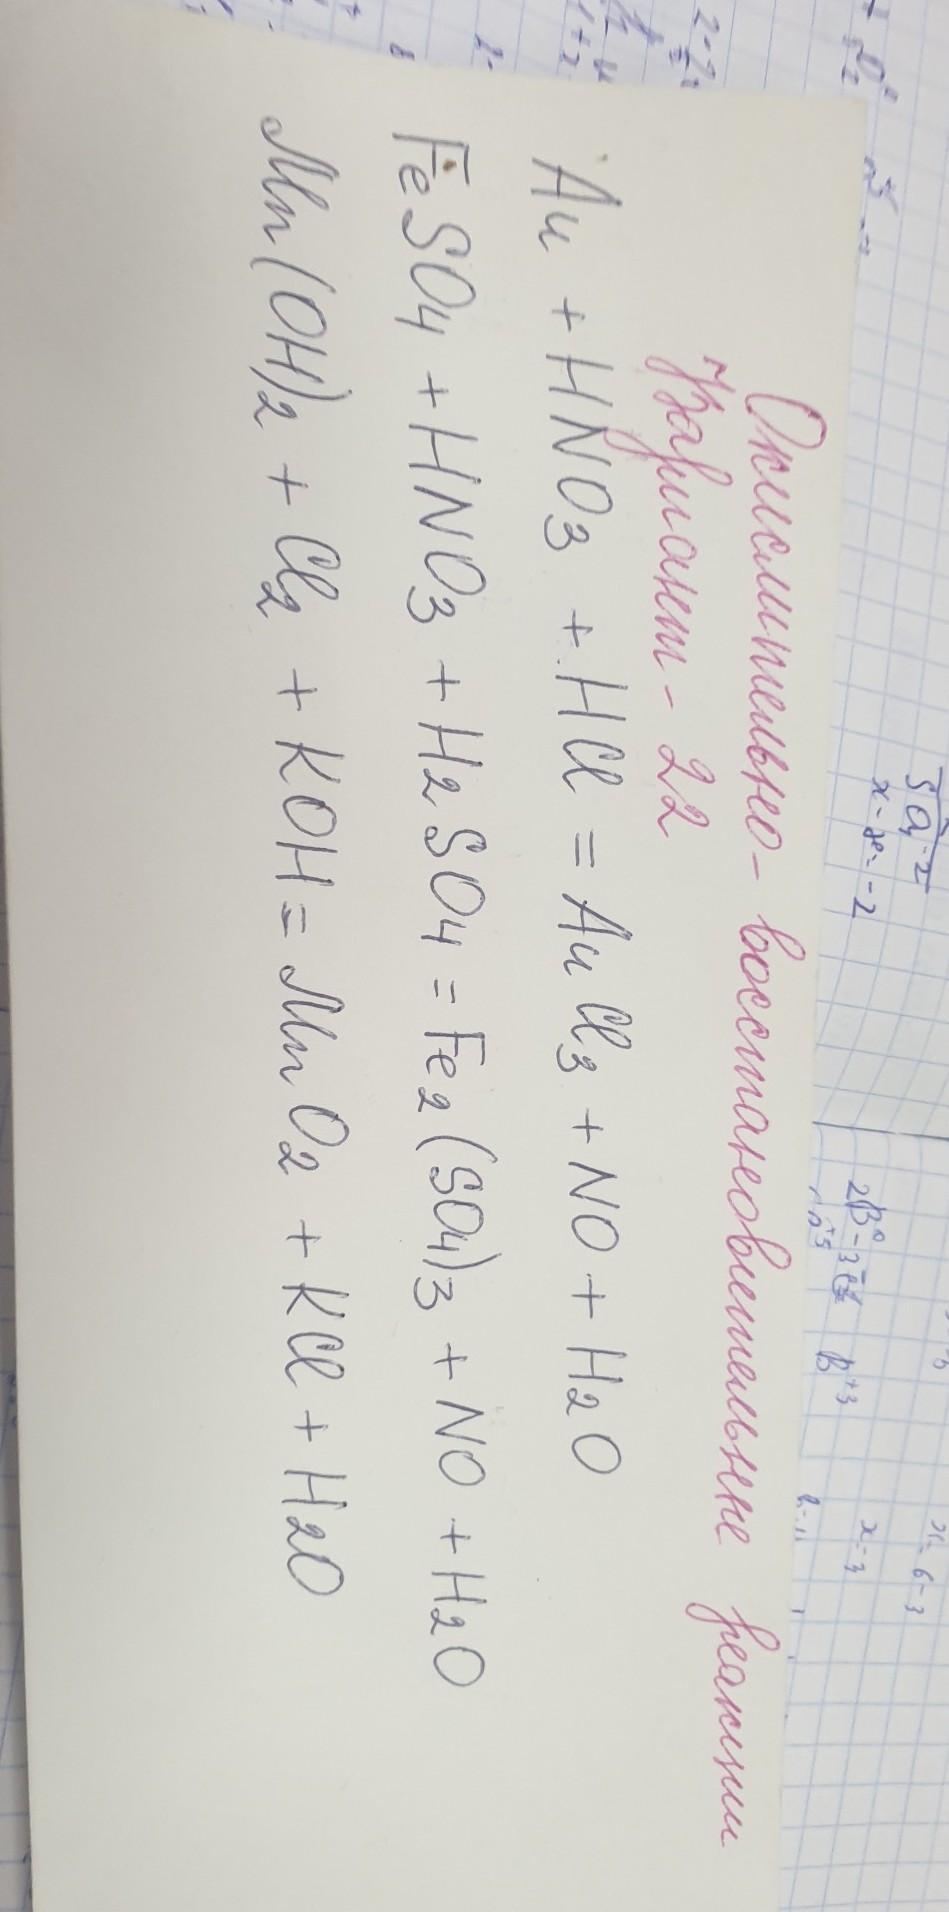 Окислительно-восстановительные реакции
Вариант-22
Au + HNO3 + HCl = AuCl3 + NO + H2O
FeSO4 + HNO3 + H2SO4 = Fe2(SO4)3 + NO + H2O
Mn(OH)2 + Cl2 + KOH = MnO2 + KCl + H2O
x = -2
x-3